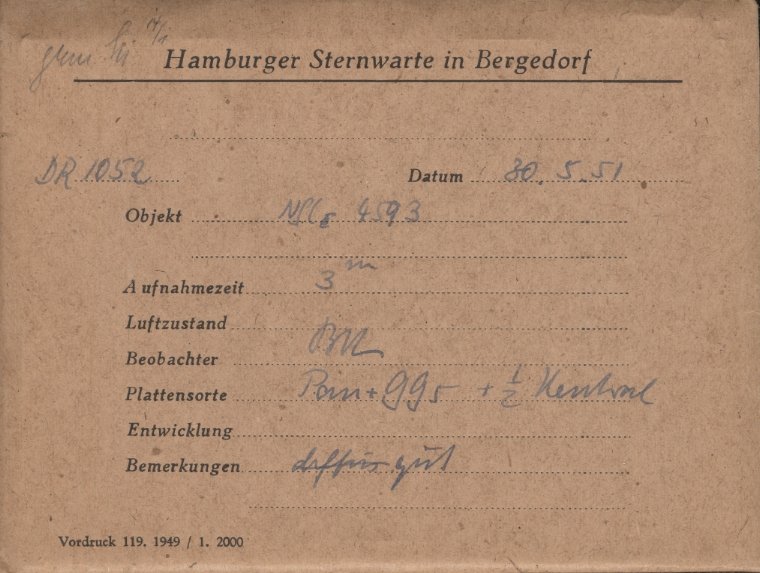 Hamburger Sternwarte in Bergedorf
DR 1052 Datum 30.5.51
Objekt 4593
Aufnahmezeit 3 m
Luftzustand
Beobachter
Plattensorte Pan + GG5 + 1/2 Neutral
Entwicklung
Bemerkungen gut
Vordruck 119. 1949 / 1. 2000